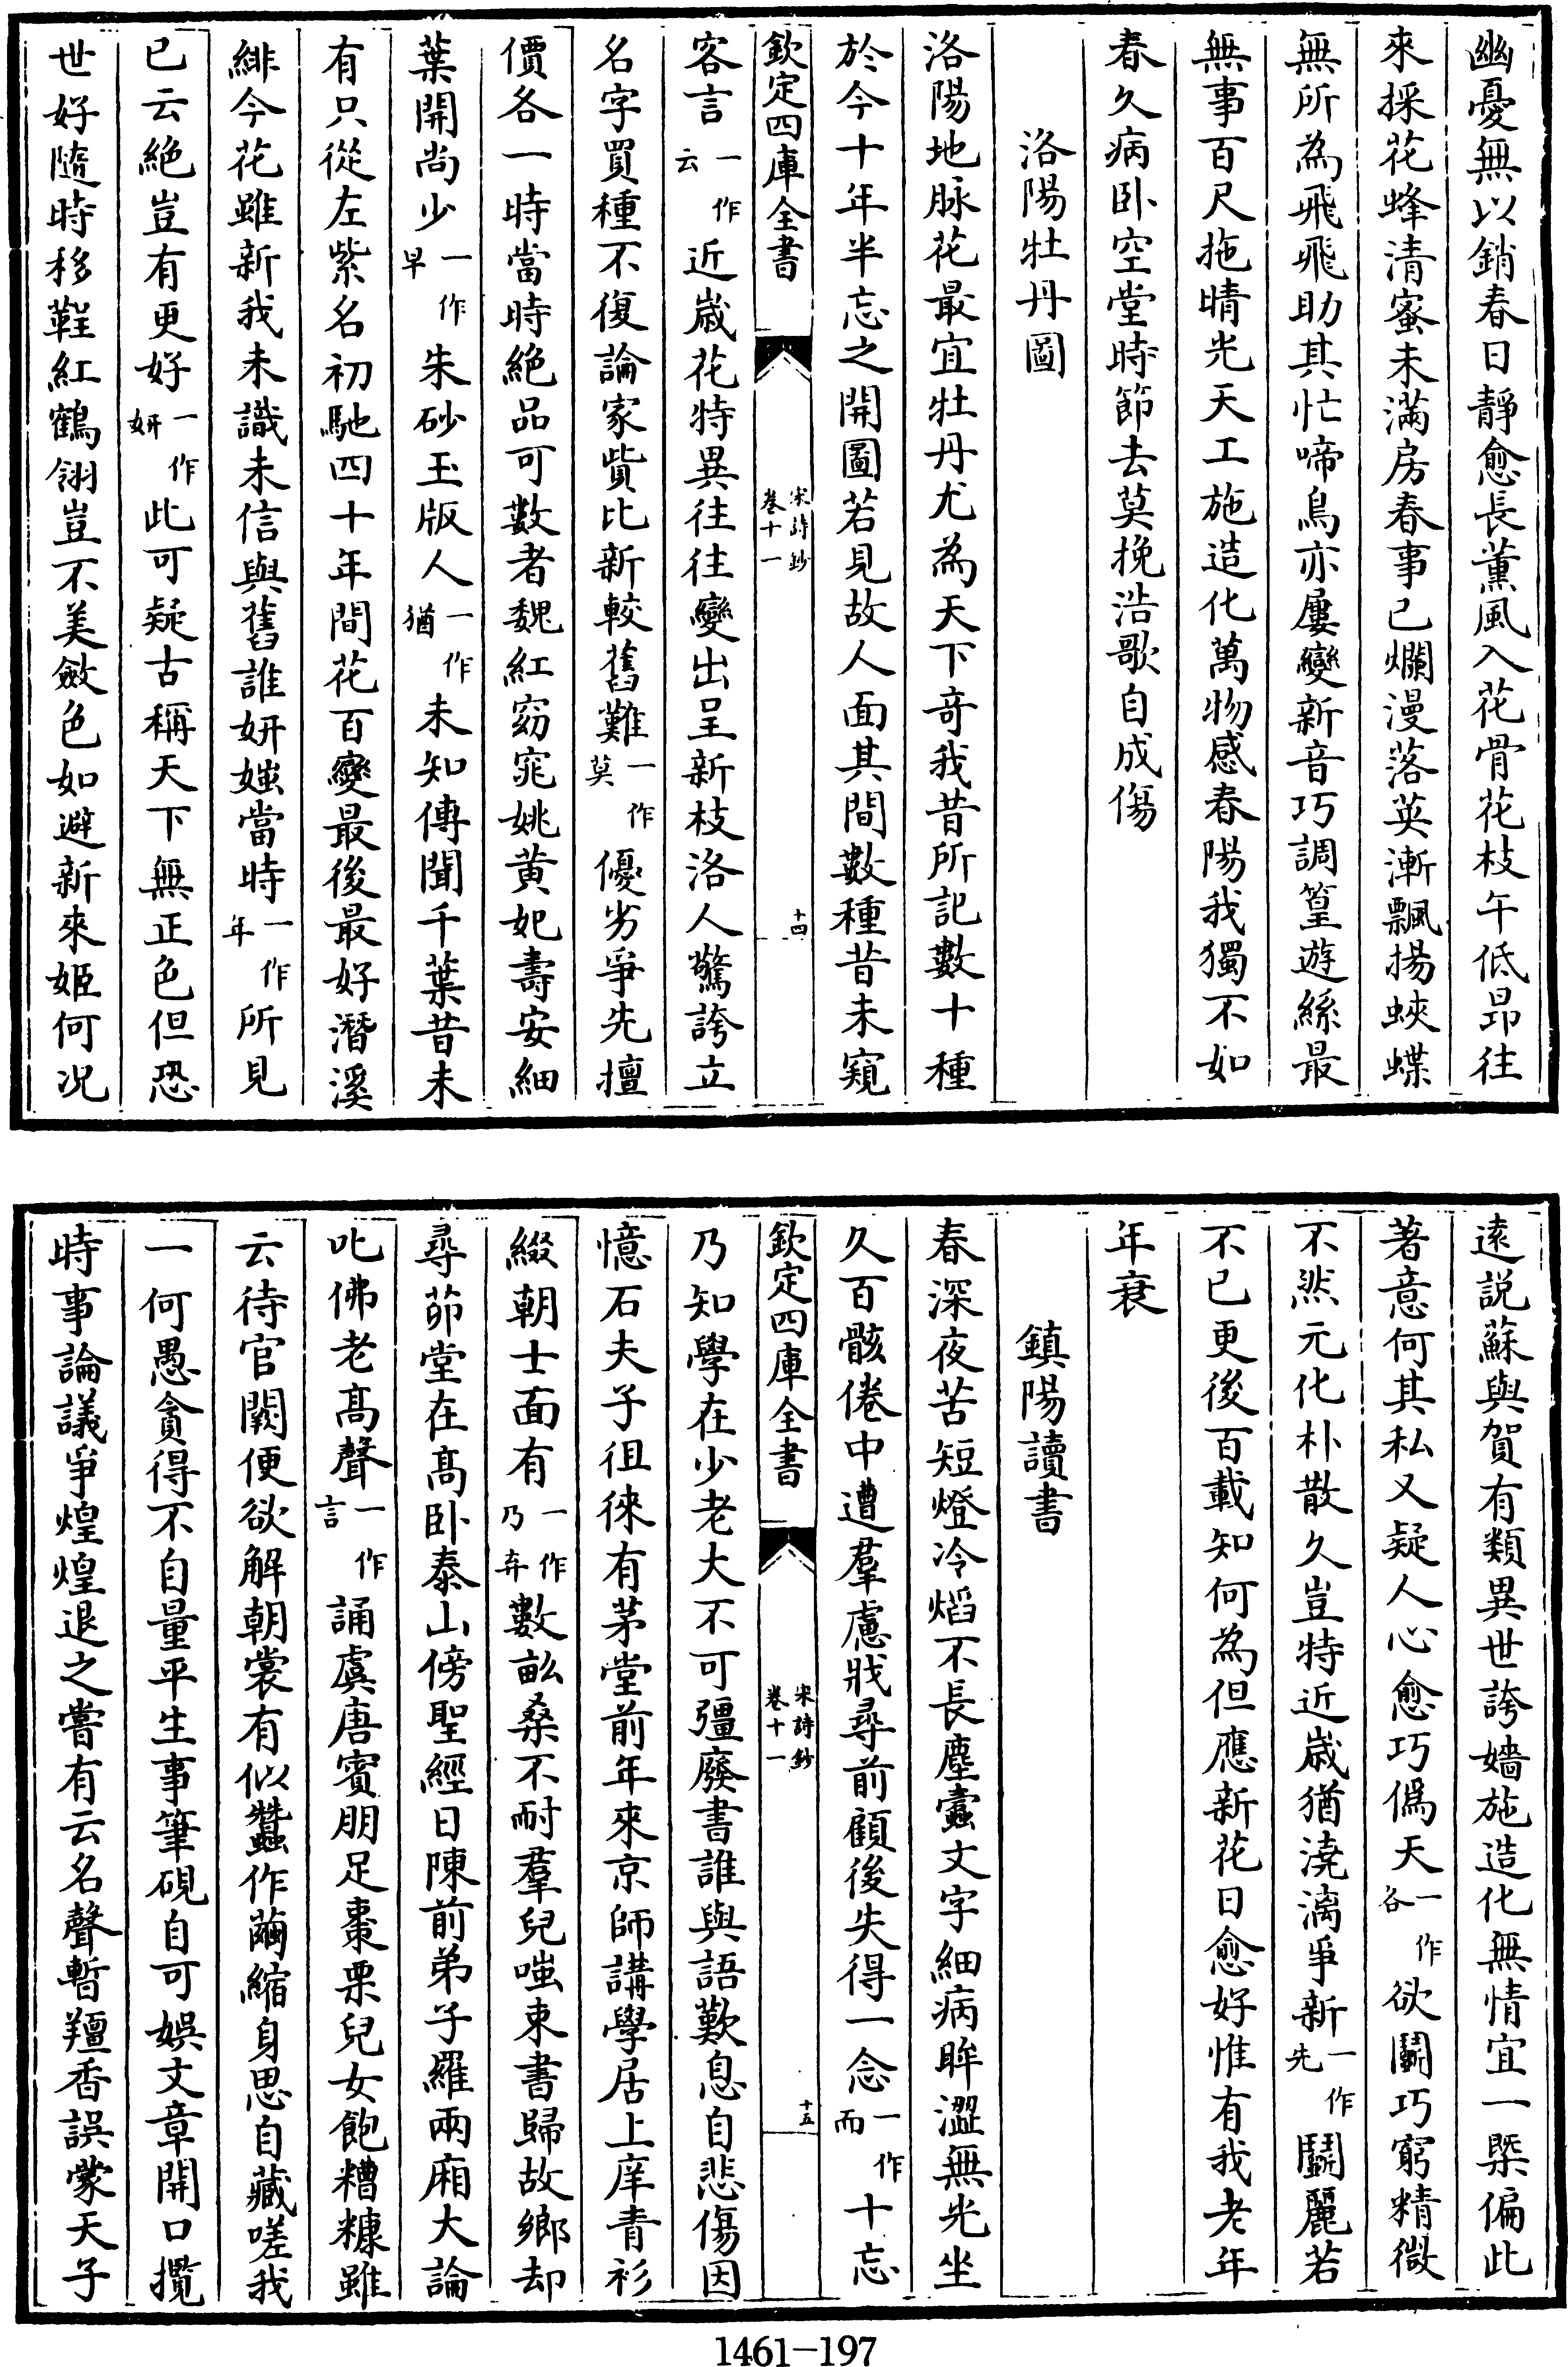 幽憂無以銷春日靜愈長薰風入花骨花枝午低昂往
來採花蜂清蜜未滿房春事已爛漫落英漸飄揚蛺蝶
無所為飛飛助其忙啼鳥亦屢變新音巧調篁遊絲最
無事百尺拖晴光天工施造化萬物感春陽我獨不如
春久病卧空堂時節去莫挽浩歌自成傷
洛陽牡丹圖
洛陽地脉花最宜牡丹尤為天下竒我昔所記數十種
於今十年半忘之開圖若見故人面其間數種昔未窺
欽定四庫全書
宋詩鈔
卷十一
十四
客言一作云近嵗花特異往往變出呈新枝洛人驚誇立
名字買種不復論家貲比新較舊難一作莫優劣爭先擅
價各一時當時絶品可數者魏紅窈窕姚黄妃壽安細
葉開尚少一作早朱砂玉版人一作猶未知傳聞千葉昔未
有只從左紫名初馳四十年間花百變最後最好潛溪
緋今花雖新我未識未信與舊誰妍媸當時一作年所見
已云絶豈有更好一作妍此可疑古稱天下無正色但恐
世好隨時移鞓紅鶴翎豈不美斂色如避新來姬何况
逺説蘇與賀有類異世誇嬙施造化無情宜一槩偏此
著意何其私又疑人心愈巧偽天一作各欲鬭巧窮精微
不然元化朴散久豈特近嵗猶澆漓爭新一作先鬭麗若
不已更後百載知何為但應新花日愈好惟有我老年
年衰
鎮陽讀書
春深夜苦短燈冷熖不長塵蠧文字細病眸澀無光坐
久百骸倦中遭羣慮戕尋前顧後失得一念一作而十忘
欽定四庫全書
宋詩鈔
卷十一
十五
乃知學在少老大不可彊廢書誰與語歎息自悲傷因
憶石夫子徂徠有茅堂前年來京師講學居上庠青衫
綴朝士面有一作乃弃數畝桑不耐羣兒嗤束書歸故鄉却
尋茆堂在髙卧泰山傍聖經日陳前弟子羅兩廂大論
叱佛老髙聲一作言誦虞唐賓朋足棗栗兒女飽糟糠雖
云待官闕便欲解朝裳有似蠶作繭縮身思自藏嗟我
一何愚貪得不自量平生事筆硯自可娛文章開口攬
時事論議爭煌煌退之嘗有云名聲暫羶香誤蒙天子
1461-197